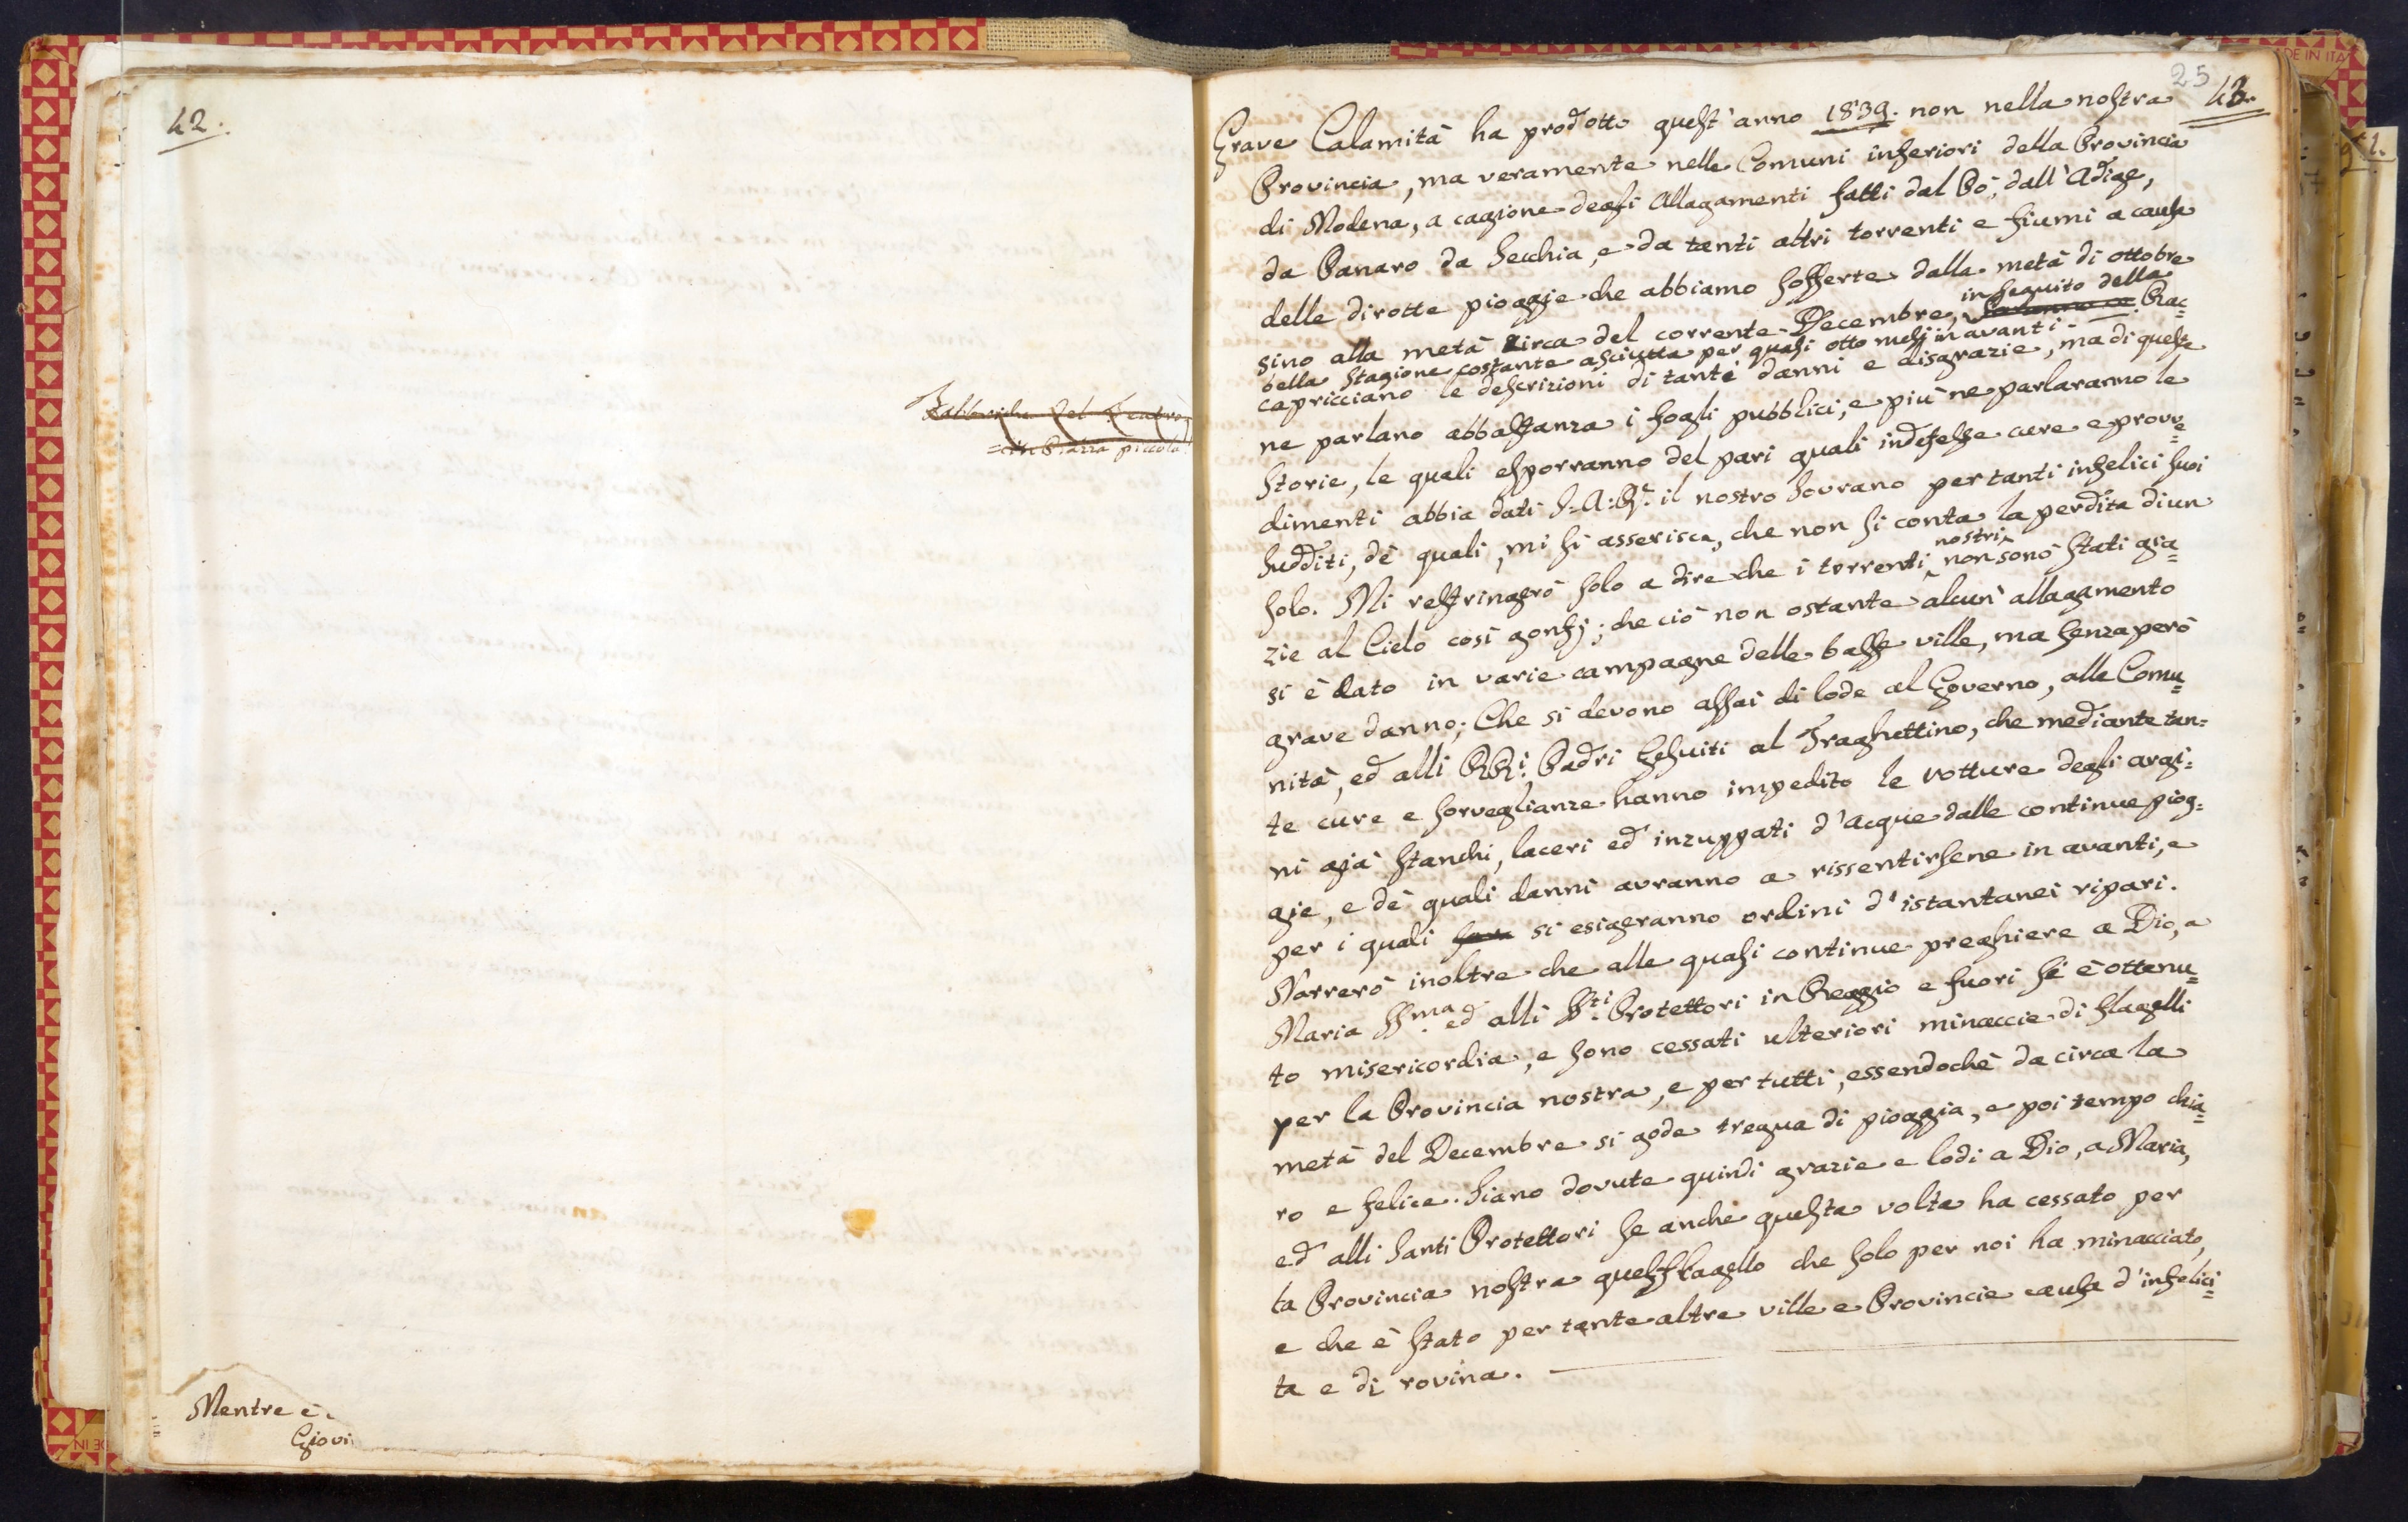 42.
Fabbriche del Teatro
= in Piazza piccola
Mentre è
Giovi
25
43.
Grave Calamità ha prodotto quest'anno 1839. non nella nostra
Provincia, ma veramente nelle Comuni inferiori della Provincia
di Modena, a cagione degli Allagamenti fatti dal Pò, dall'Adige,
da Panaro da Secchia, e da tanti altri torrenti e fiumi a causa
delle dirotte pioggie che abbiamo sofferte dalla metà di ottobre
in seguito della
sino alla metà circa del corrente Decembre, Rac=
bella Stagione costante asciutta per quasi otto mesi in avanti.
capricciano le descrizioni di tanti danni e disgrazie, ma di queste
ne parlano abbastanza i fogli pubblici, e più ne parlaranno le
Storie, le quali esporranno del pari quali indefesse cure e provve=
dimenti abbia dati S: A: R: il nostro Sovrano per tanti infelici suoi
sudditi, de' quali, mi si asserisca, che non si conta la perdita di un
solo. Mi restringerò solo a dire che i torrenti nostri non sono stati gra=
zie al Cielo così gonfj; che ciò non ostante alcun' allagamento
si è dato in varie campagne delle basse ville, ma senza però
grave danno; Che si devono assai di lode al Governo, alle Comu=
nità, ed alli RRi. Padri Gesuiti al Traghettino, che mediante tan=
te cure e sorveglianze hanno impedito le rotture degli argi=
ni già stanchi, laceri ed inzuppati d'acque dalle continue piog=
gie, e de' quali danni avranno a rissentirsene in avanti, e
per i quali si esigeranno ordini d'istantanei ripari.
Narrerò inoltre che alle quasi continue preghiere a Dio, a
Maria SSma. ed alli Sti. Protettori in Reggio e fuori si è ottenu=
to misericordia, e sono cessati ulteriori minaccie di flagelli
per la Provincia nostra, e per tutti, essendochè da circa la
metà del Decembre si gode tregua di pioggia, e poi tempo chia=
ro e felice. Siano dovute quindi grazie e lodi a Dio, a Maria,
ed alli Santi Protettori se anche questa volta ha cessato per
la Provincia nostra quel flagello che solo per noi ha minacciato,
e che è stato per tante altre ville e Provincie causa d'infelici=
ta e di rovina.